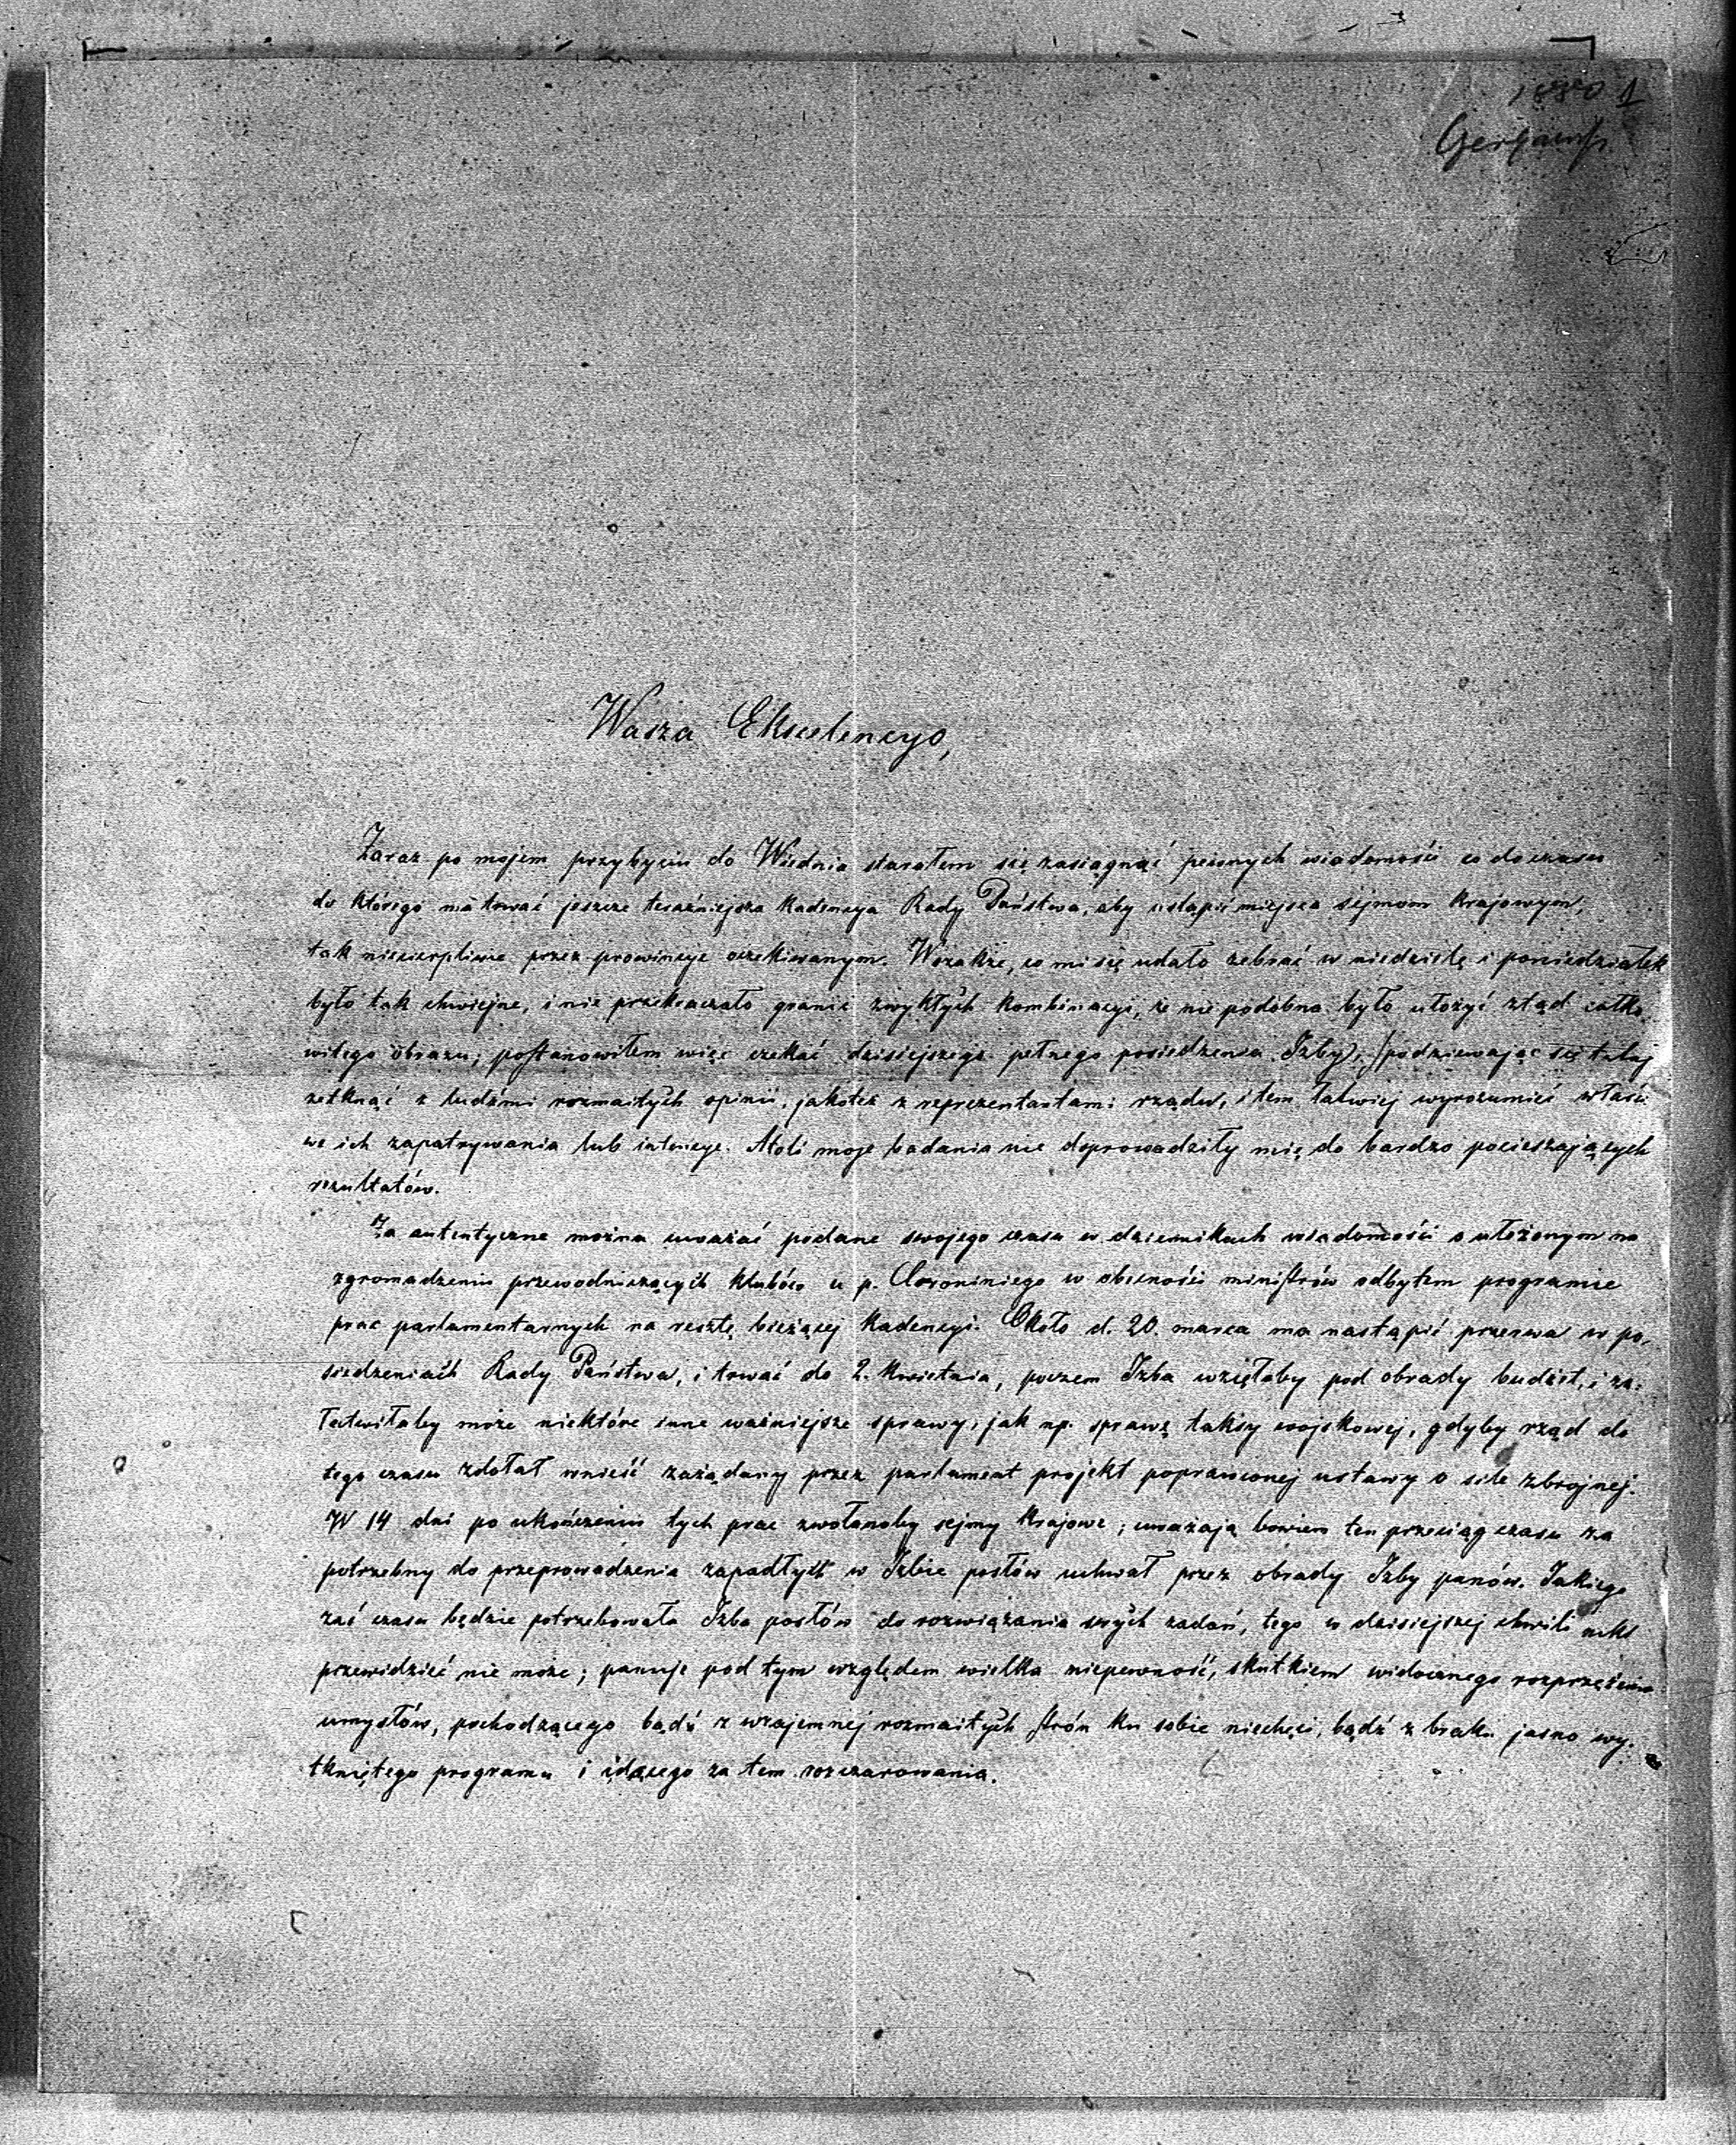 1880 1
Wasza Ekscelencyo,
Zaraz po mojem przybyciu do Wiednia starałem się zasiągnąć pewnych wiadomości co do czasu
do którego ma trwać jeszcze teraźniejsza kadencya Rady Państwa, aby ustąpić miejsca sejmom krajowym,
tak niecierpliwie przez prowincye oczekiwanym. Wszakże, co mi się udało zebrać w niedzielę i poniedziałek
było tak chwiejne, i nie przekraczało granic zwykłych kombinacyi, że nie podobna było ułożyć ztąd całko
witego obrazu; postanowiłem więc czekać dzisiejszego pełnego posiedzenia Izby, spodziewając się tutaj
zetknąć z ludźmi rozmaitych opinii, jakoteż z reprezentantami rządu, i tem łatwiej wyrozumieć właści
we ich zapatrywania lub intencye. Atoli moje badania nie doprowadziły mię do bardzo pocieszających
rezultatów.
Za autentyczne można uważać podane swojego czasu w dziennikach wiadomości o ułożonym na
zgromadzeniu przewodniczących klubów u p. Coroniniego w obecności ministrów odbytem programie
prac parlamentarnych na resztę bieżącej kadencyi. Około d. 20. marca ma nastąpić przerwa w po-
siedzeniach Rady Państwa, i trwać do 2. kwietnia, poczem Izba wzięłaby pod obrady budżet, i za-
łatwiłaby może niektóre inne ważniejsze sprawy, jak np. sprawę taksy wojskowej, gdyby rząd do
tego czasu zdołał wnieść zażądany przez parlament projekt poprawionej ustawy o sile zbrojnej.
W 14 dni po ukończeniu tych prac zwołanoby sejmy krajowe; uważają bowiem ten przeciąg czasu za
potrzebny do przeprowadzenia zapadłych w Izbie posłów uchwał przez obrady Izby panów. Jakiego
zaś czasu będzie potrzebowała Izba posłów do rozwiązania swych zadań, tego w dzisiejszej chwili nikt
przewidzieć nie może; panuje pod tym względem wielka niepewność, skutkiem widocznego rozprzężenia
umysłów, pochodzącego bądź z wzajemnej rozmaitych stron ku sobie niechęci, bądź z braku jasno wy-
tkniętego programu i idącego za tem rozczarowania.